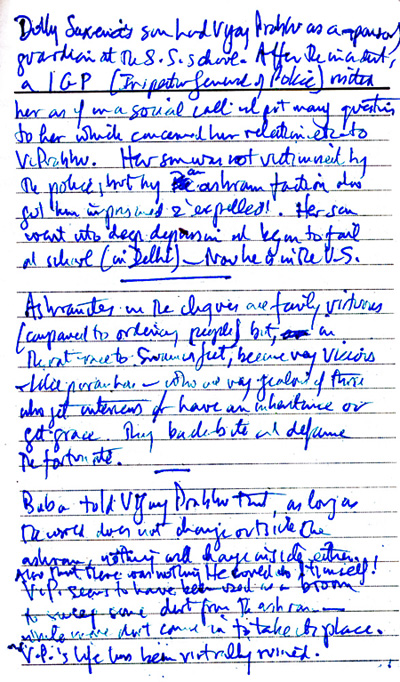 Dolly Saxena's son had Vijay Prabhu as a sponsor/
guardian at the S.S. school. After the incident,
a IGP (Inspector General of Police) visited
her as if on a social call and put many questions
to her which concerned her relation etc to
V. Prabhu. Her son was not victimised by
the police, but by an ashram faction who
got him imprisoned & expelled!. Her son
went into deep depression and began to fail
at school (in Delhi) - Now he is in the U.S.
Ashramites in the cliques are fairly virtuous
(compared to ordinary people) but, in
the rat-race to Swami's feet, become very vicious
- like piranhas - who are very jealous of those
who get interviews or have an inheritance or
get grace. They backbite and defame
the fortunate.
Baba told Vijay Prabhu that, as long as
the world does not change outside the
ashram, nothing will change inside either.
Also that there was nothing He could do Himself!
V.P. seems to have been used as a broom
to sweep some dust from the ashram -
while more dust comes in to take its place.
V.P.'s life has been virtually ruined.